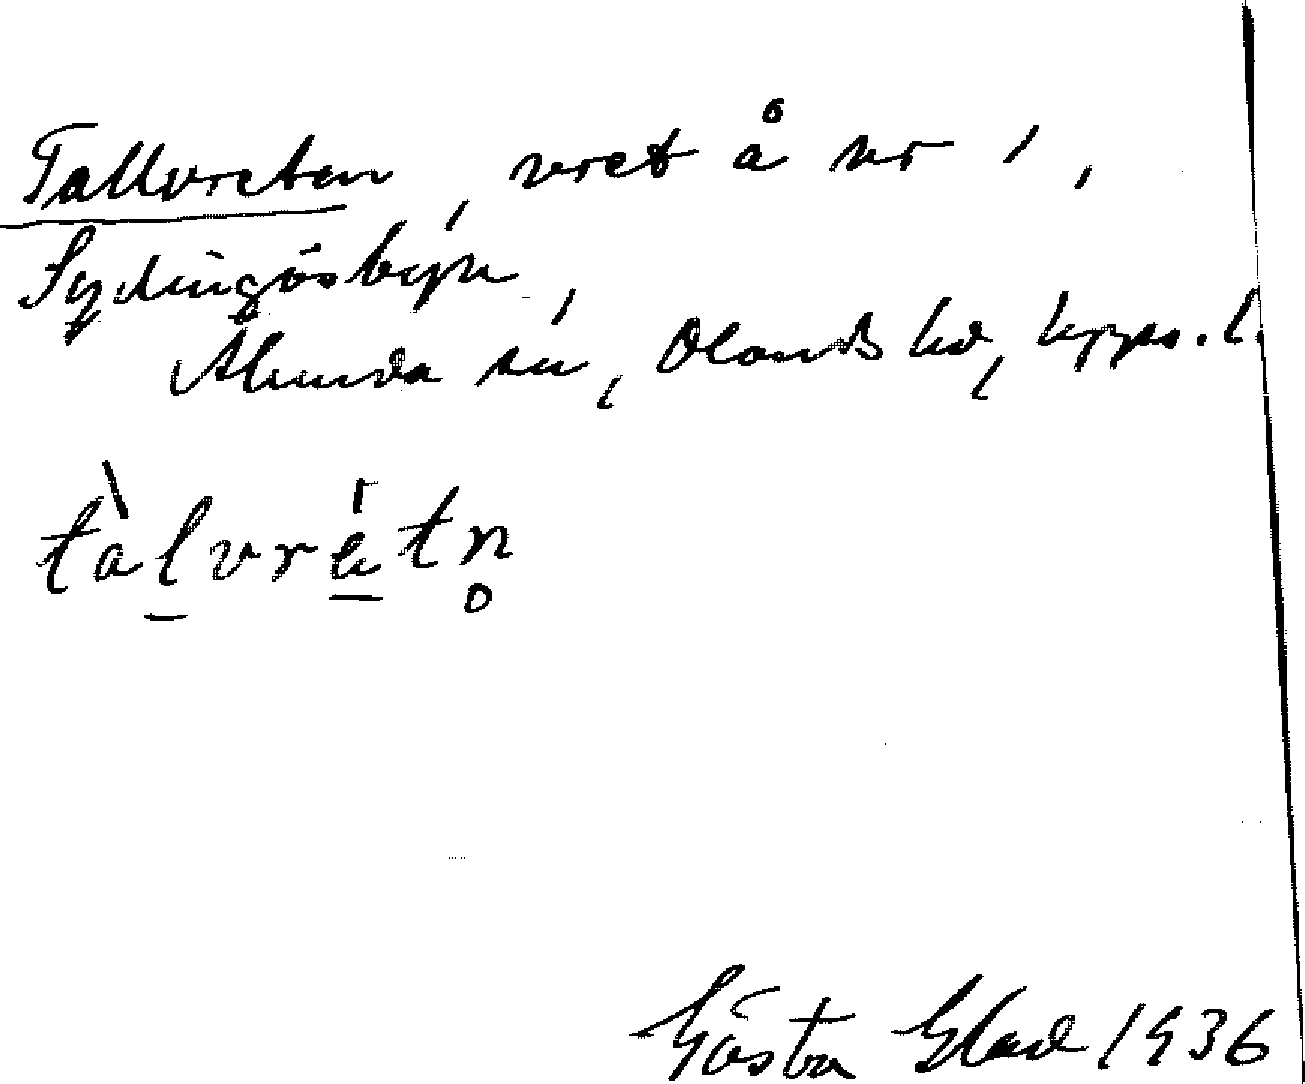 Tallvreten, vret å nr 1,
Sydingösbyn,
Alunda sn, Olands hd, Upps. l.
tàlvrétn̥
Gösta Glad 1936